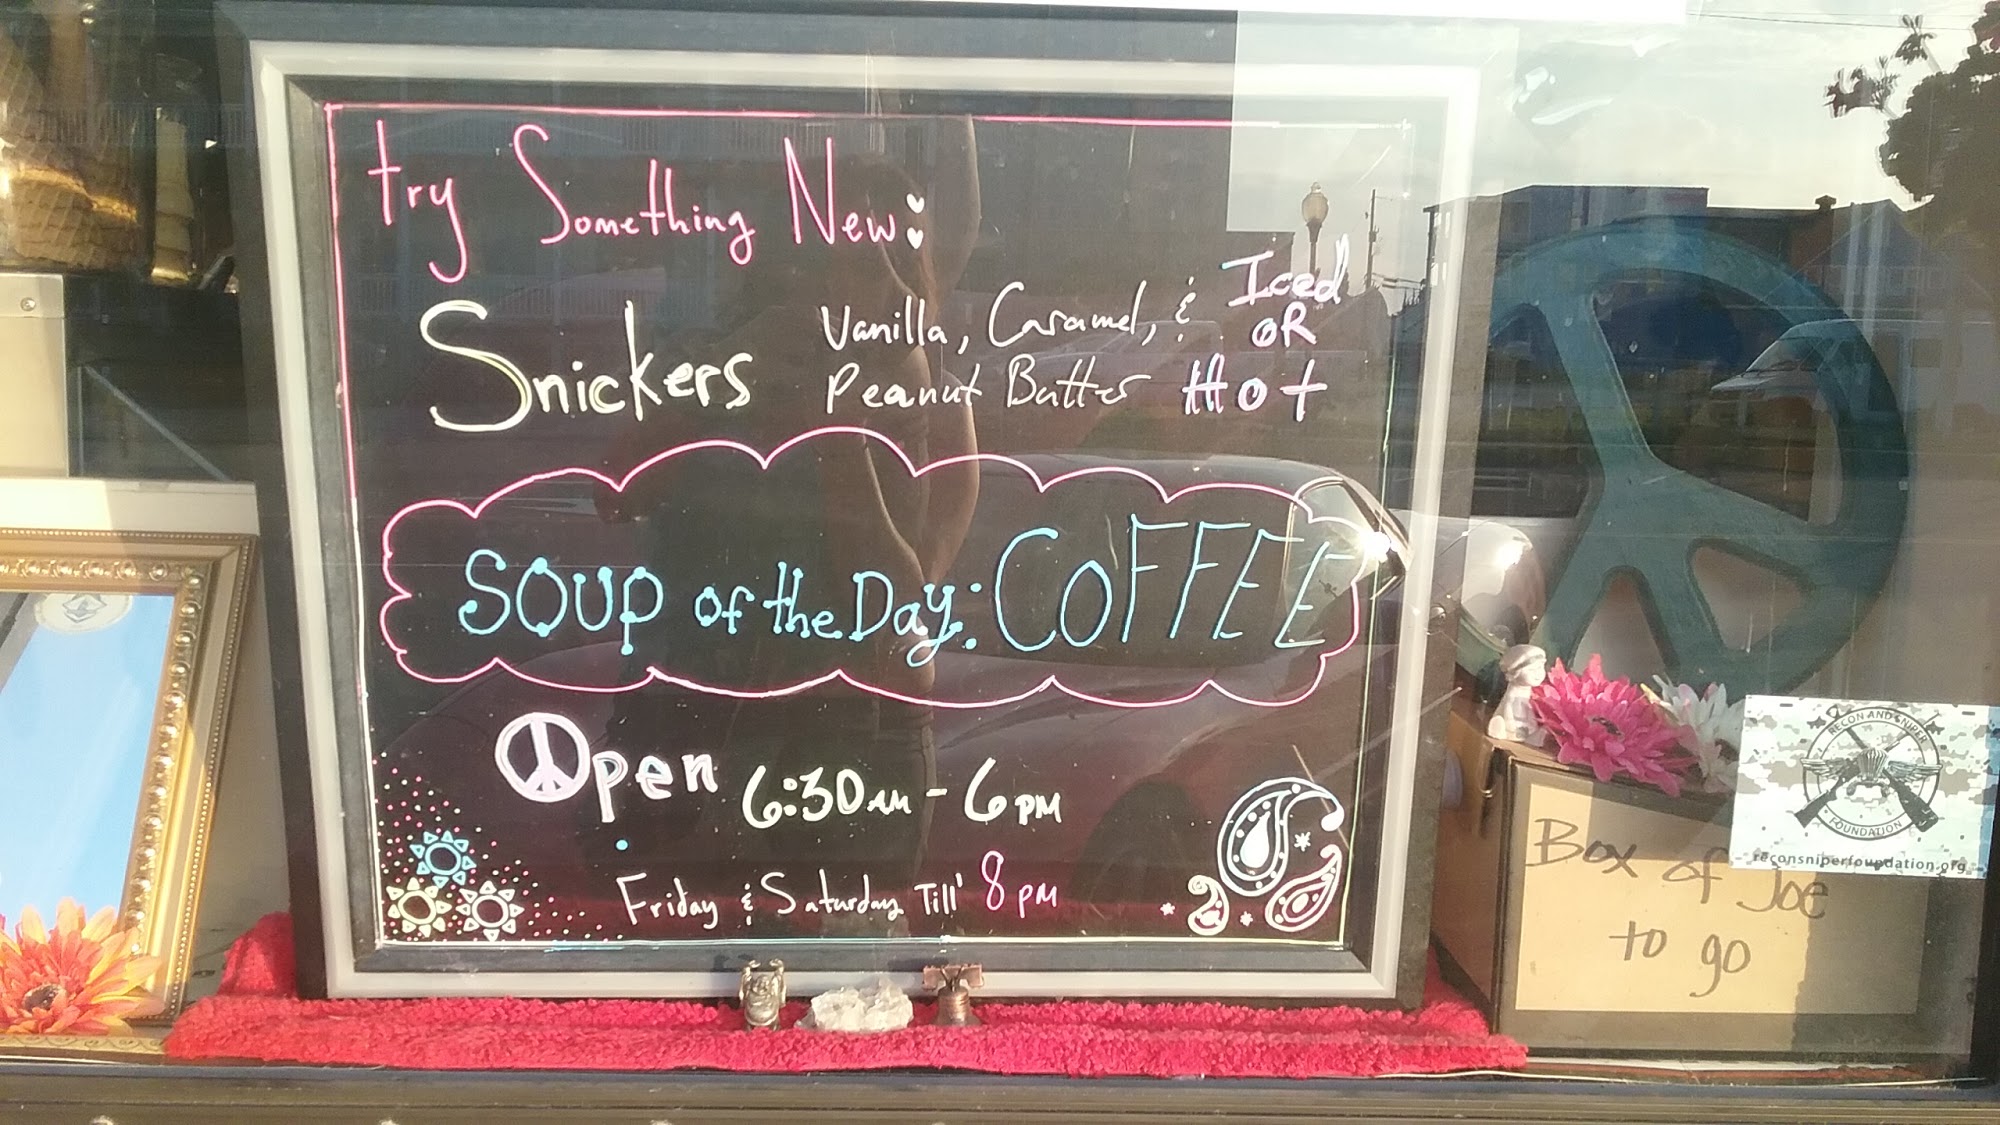 try Something New:
Snickers
Vanilla, Caramel, &
Peanut Butter
Iced
OR
Hot
SOUP of the Day: COFFEE
Open 6:30 AM - 6 PM
Friday & Saturday Till' 8 PM
Box of Joe
to go
RECON AND SNIPER
FOUNDATION
reconsniperfoundation.org